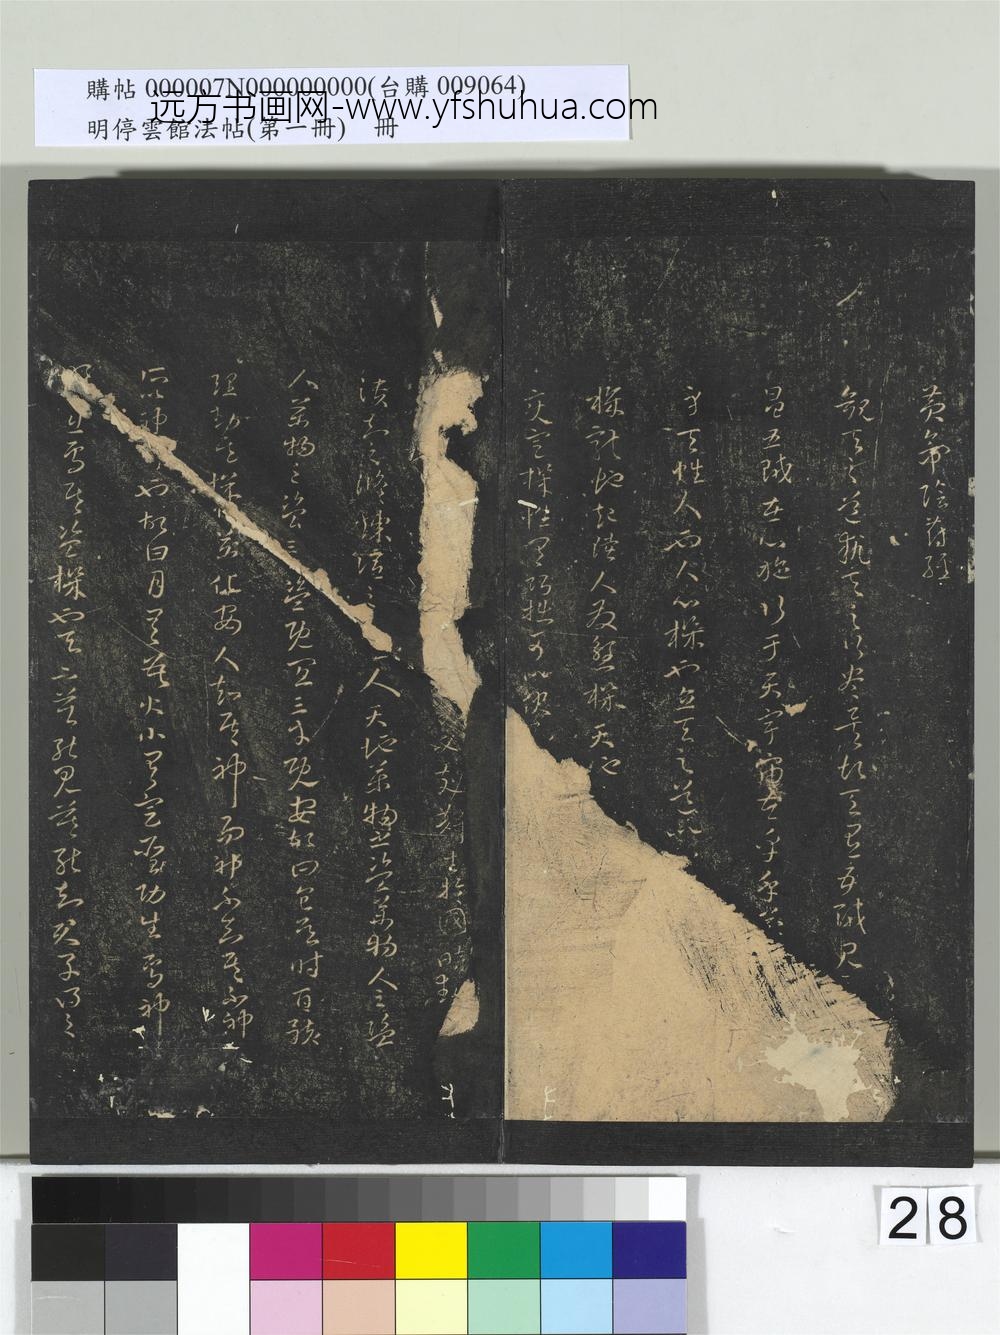 購帖 000007N000000000(台購 009064)
明停雲館法帖(第一冊) 冊
远方书画网-www.yfshuhua.com
黃帝陰符經
觀天之道執天之行盡矣故天有五賊見
昌五賊在心施行于天宇宙在乎手
乎身天性人也人心機也立天之道以
機龍蛇起陸人發殺機天地
變定機性有巧拙可以伏
生於國時
潰知之修煉謂之人天地萬物之盜萬物人之盜
人萬物之盜三盜既宜三才既安故曰食其時百骸
理動其機萬化安人知其神而神不知其不神
所神也故日月有數大小有定聖功生焉神
明出焉其盜機也天下莫能見莫能知君子得之
28